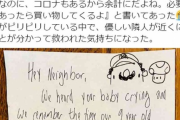 なのに、コロナもあるから余計にだよね。必要
あったら買い物してくるよ』と書いてあった
がピリピリしている中で、優しい隣人が近くに
とが分かって救われた気持ちになった。
Hey Neighbor,
We heard your baby crying and
we remember the
old